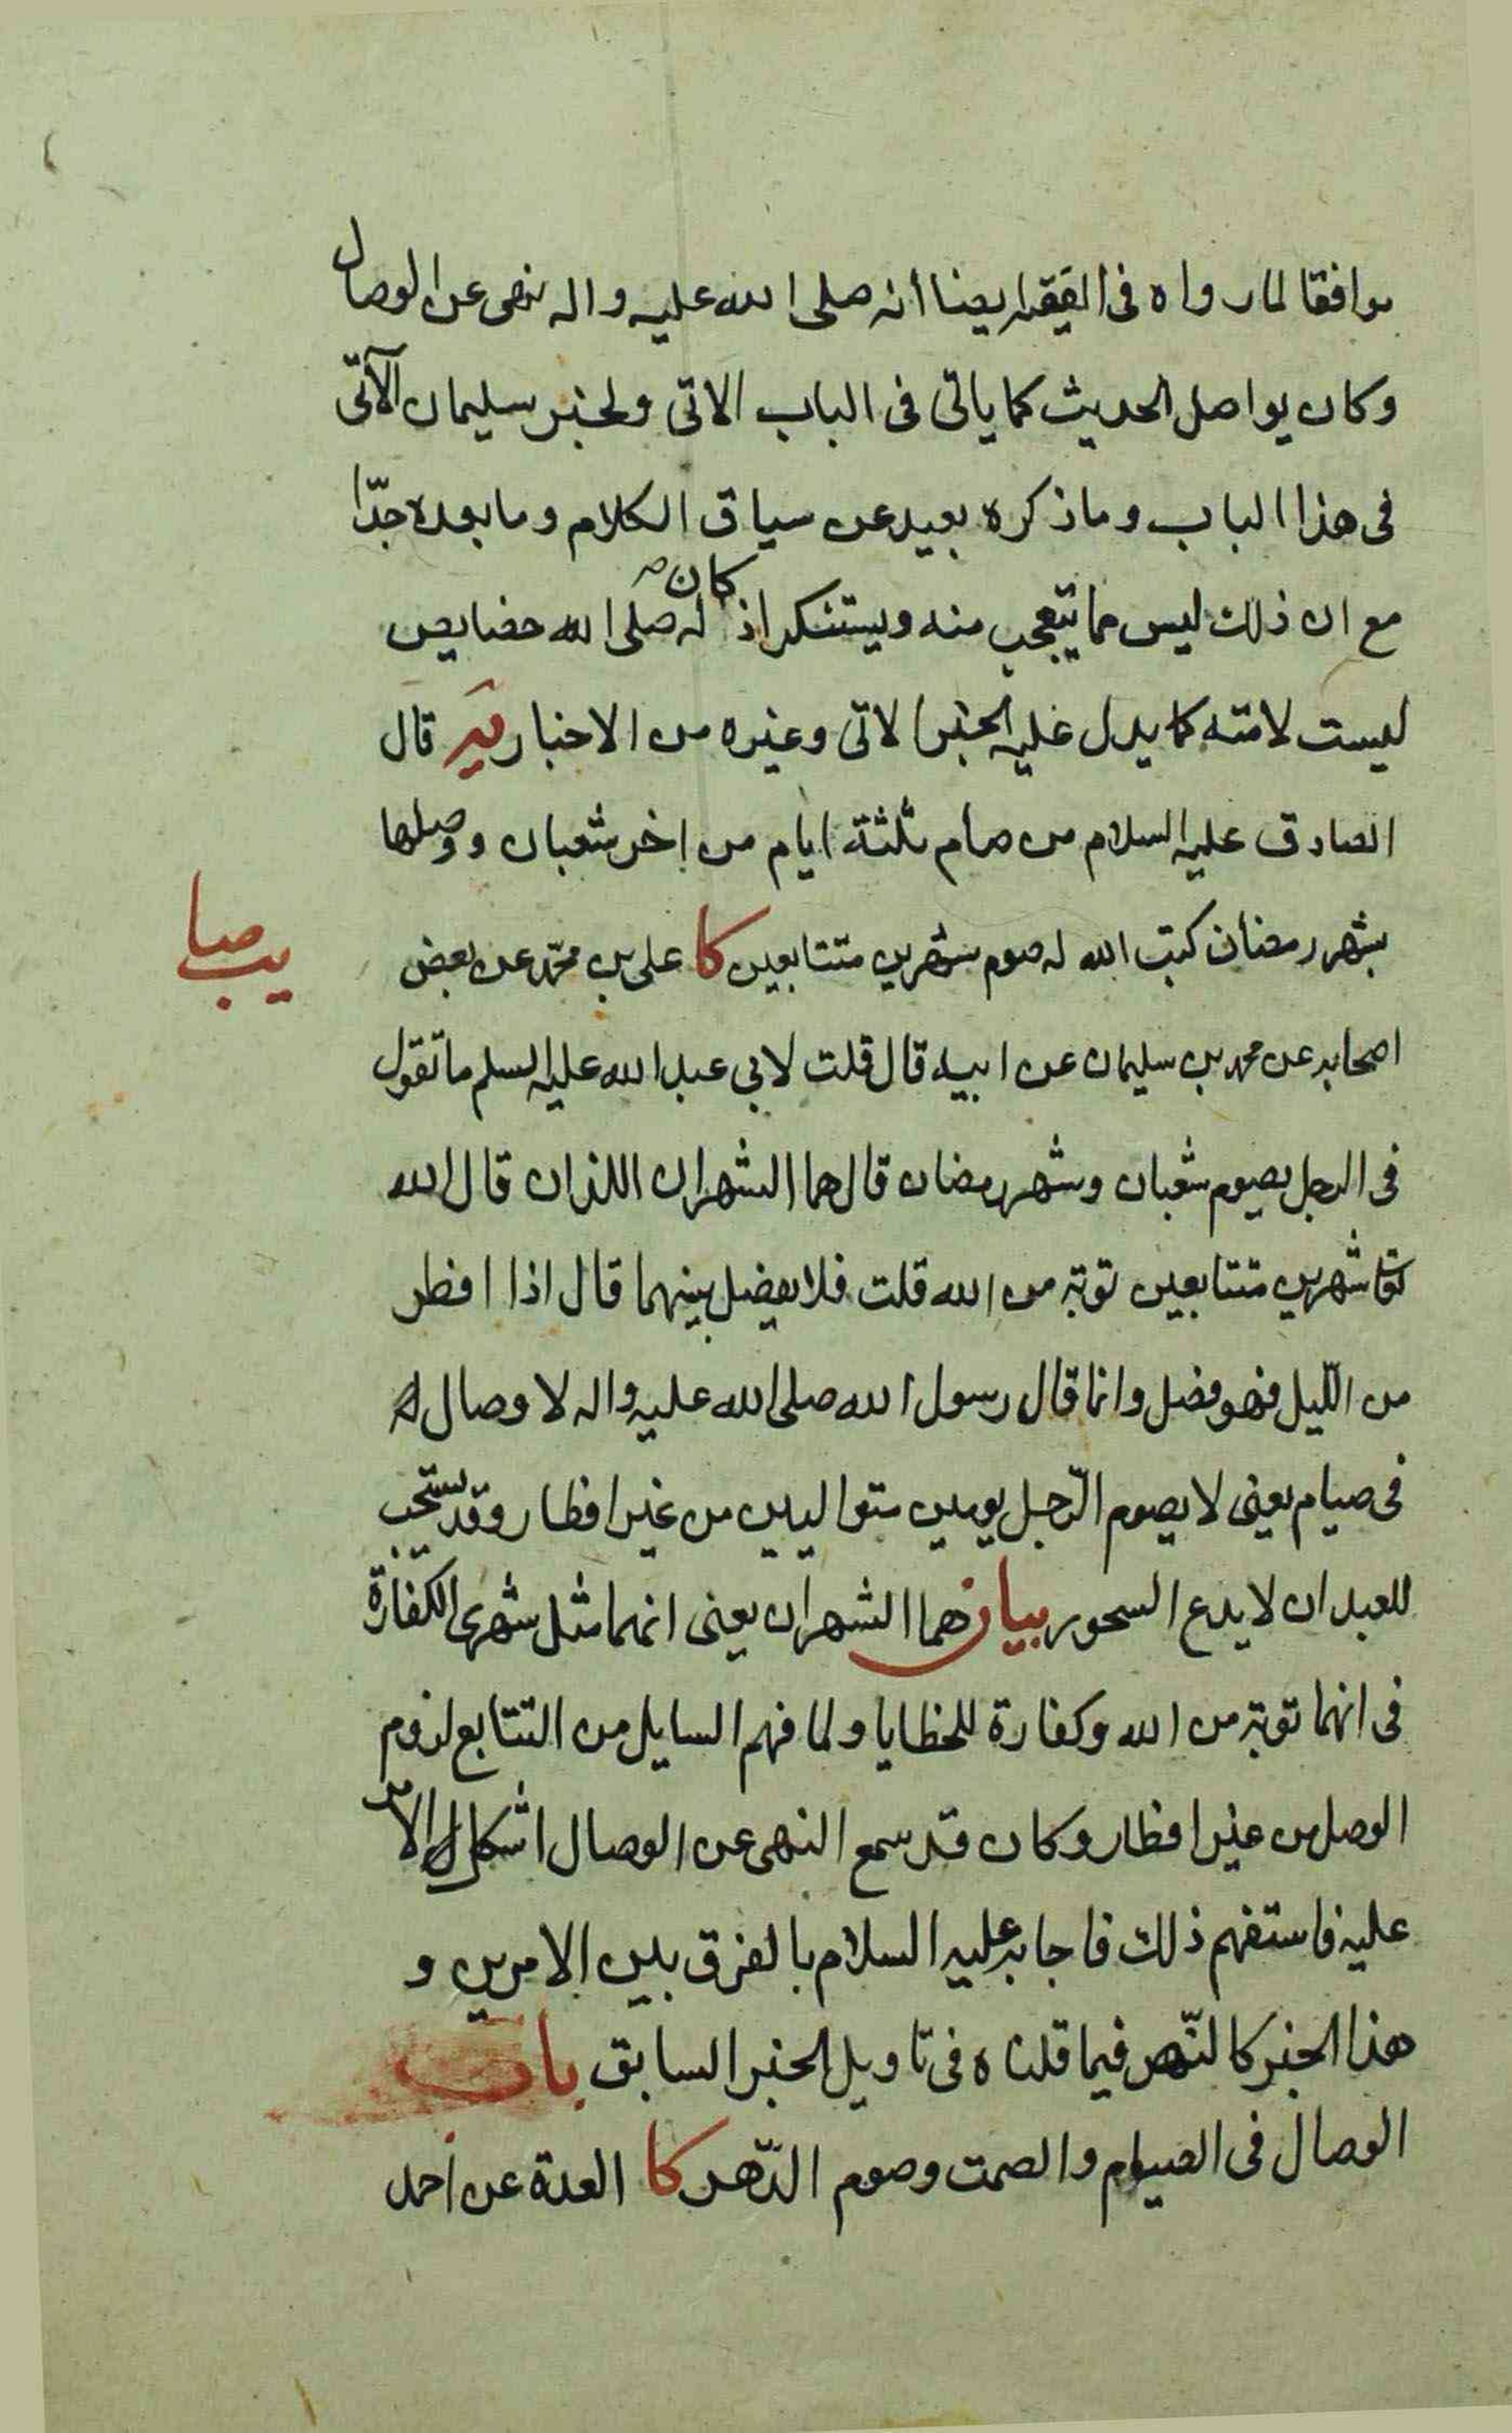 موافقا لما رواه فى الفقيه ايضا انه صلى الله عليه واله نهى عن الوصال
وكان يواصل الحديث كما ياتى فى الباب الاتى ولخبر سليمان الآتى
فى هذا الباب وما ذكره بعيد عن سياق الكلام وما بعده جدّا
مع ان ذلك ليس مما يتعجب منه ويستنكر اذ كان له صلى الله خصايص
ليست لامته كما يدل عليه الخبر الاتى وغيره من الاخبار يه قال
الصادق عليه السلام من صام ثلثة ايام من اخر شعبان ووصلها
بشهر رمضان كتب الله له صوم شهرين متتابعين كا على بن محمّد عن بعض
يب صا
اصحابه عن محمد بن سليمان عن ابيه قال قلت لابي عبد الله عليه السلم ما تقول
فى الرجل يصوم شعبان وشهر رمضان قال هما الشهران اللذان قال الله
تعالى شهرين متتابعين توبة من الله قلت فلا يفصل بينهما قال اذا افطر
من اللّيل فهو فصل وانما قال رسول الله صلى الله عليه واله لا وصال
فى صيام يعنى لا يصوم الرّجل يومين متواليين من غير افطار وقد يستحب
للعبد ان لا يدع السحور بيان هما الشهران يعنى انهما مثل شهرى الكفارة
فى انهما توبة من الله وكفارة للخطايا ولما فهم السايل من التتابع لزوم
الوصل من غير افطار وكان قد سمع النهى عن الوصال اشكل الامر
عليه فاستفهم ذلك فاجابه عليه السلام بالفرق بين الامرين و
هذا الخبر كالنّص فيما قلناه فى تاويل الخبر السابق باب
الوصال فى الصيام والصمت وصوم الدّهر كا العدة عن احمد